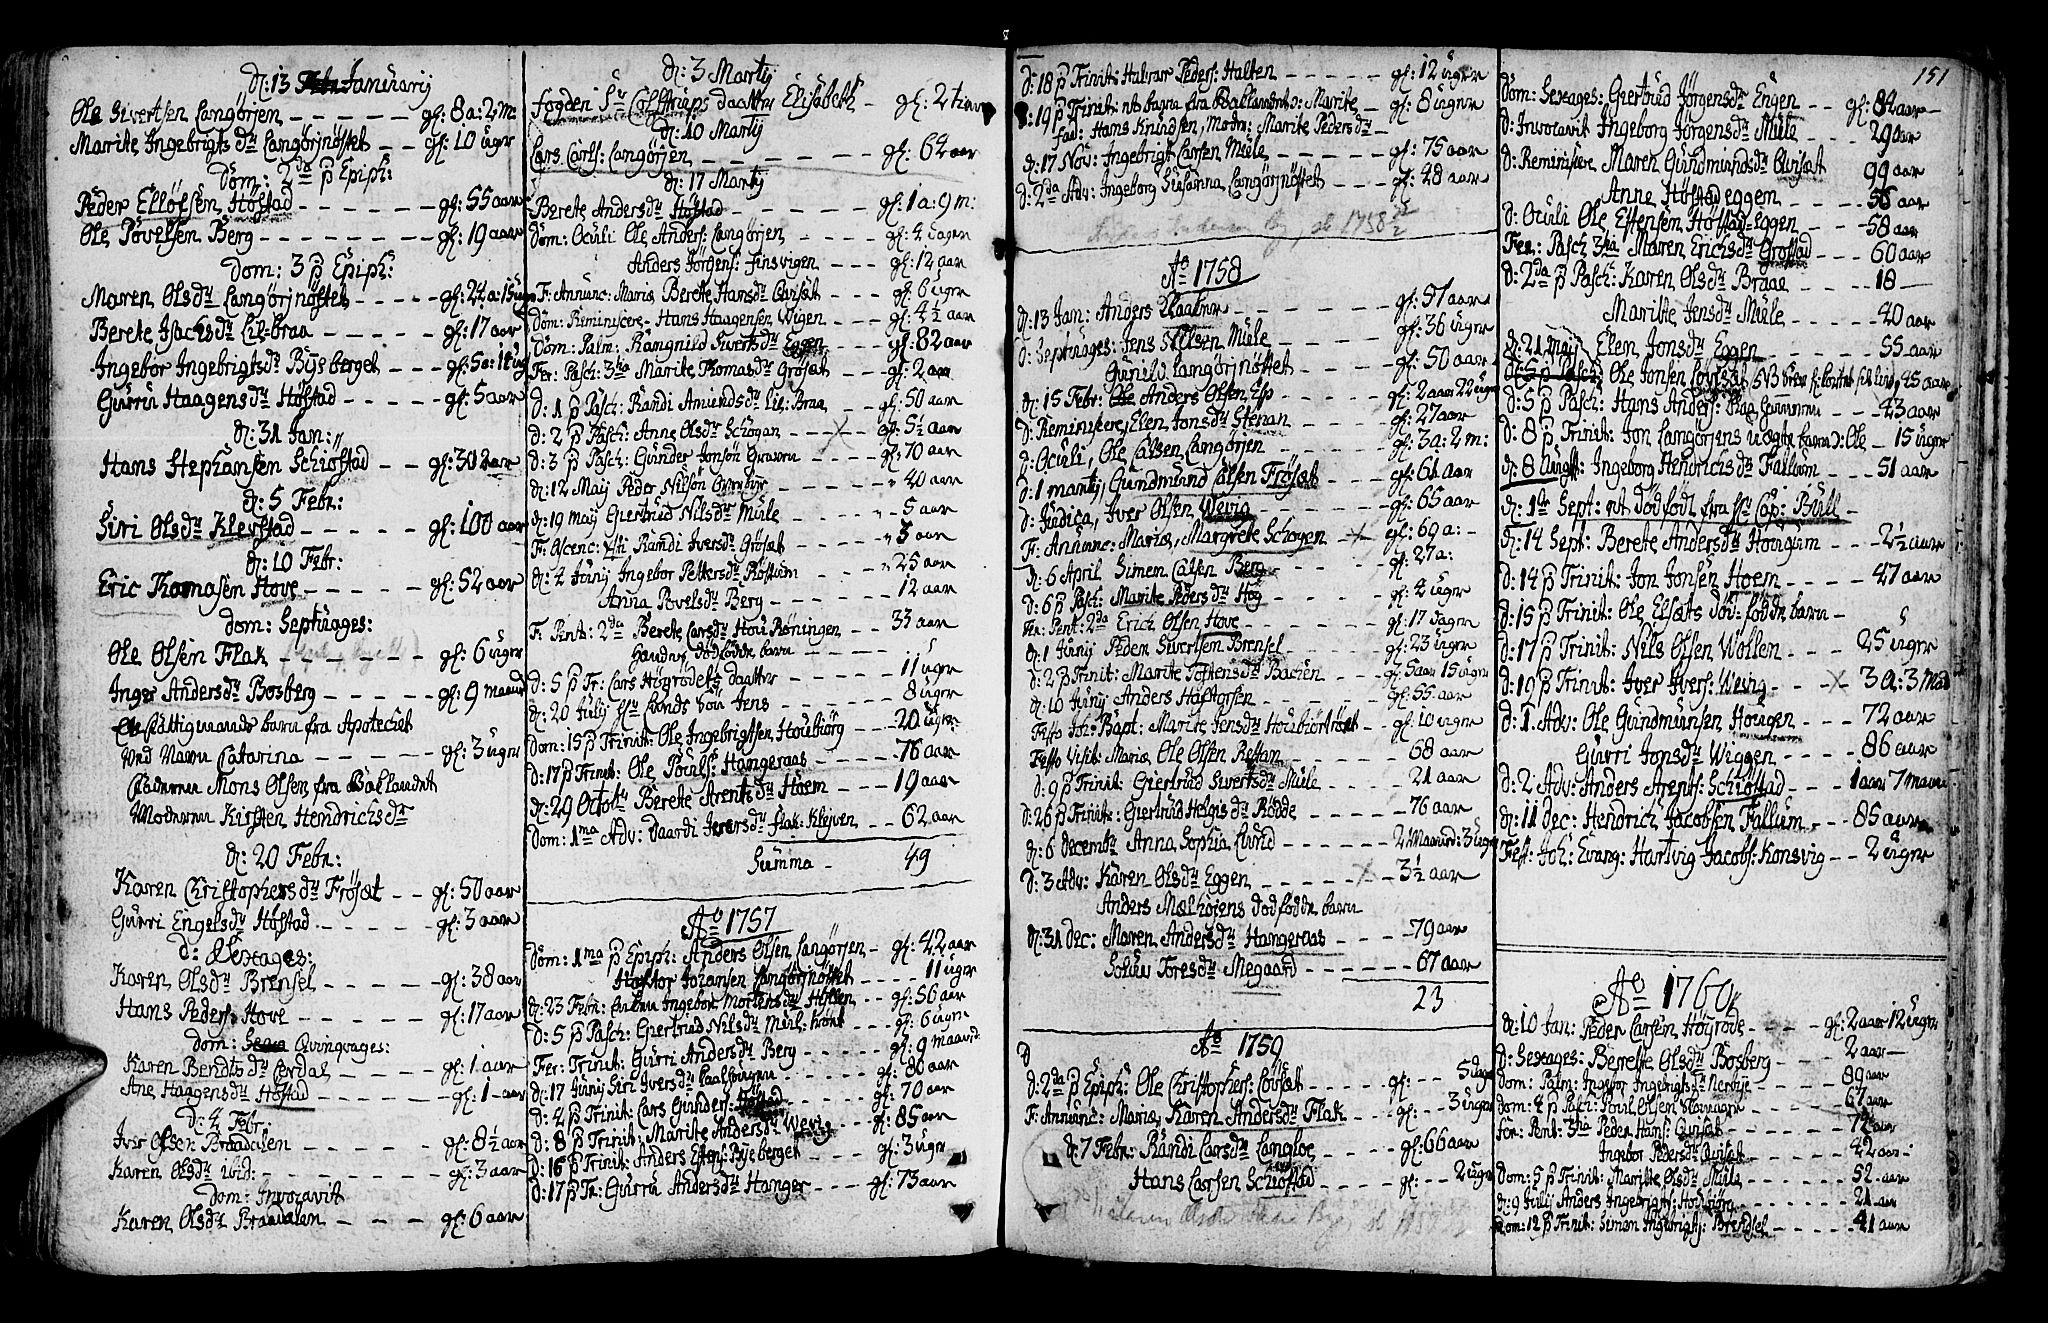 d: 13 Januarij
Ole Sivertsen Langørjen - - - gl: 8 a: 2 m:
Marite Ingebrigts dr Langørjnøstet - - gl: 10 uger
Dom: 2da p Epiph:
Peder Ellefsen Høstad - - - gl: 55 aar
Ole Povelsen Berg - - - gl: 19 aar
Dom: 3 p Epiph:
Maren Olsdr Langørjnøstet - - - gl: 24 a: 15 uger
Berete Isachsdr Lil-braa - - - gl: 17 aar
Ingebor Ingebrigtsdr Byeberget - - gl:
Gurru Haagensdr Høstad - - - gl: 5 aar
d: 31 Jan:
Hans Stephansen Schiøstad - - gl: 30 aar
d: 5 Febr:
Siri Olsdr Klefstad - - - gl: 100 aar
d: 10 Febr:
Eric Thomasen Hove - - - gl: 52 aar
Dom: Septuages:
Ole Olsen Flak - - - gl: 6 uger
Inger Andersdr Bosberg - - - gl: 9 maand
barn fra Apoteciet
ved Navn Catarina - - - gl: 3 uger
Faderen Mons Olsen fra Ballandet
Moderen Kirsten Hendrichsdr
d: 20 Febr:
Karen Christophersdr Frøset - - gl: 50 aar
Gurri Engelsdr Høstad - - - gl: 3 aar
d: Sexages:
Karen Olsdr Brensel - - - gl: 38 aar
Hans Peders: Hove - - - gl: 17 aar
Dom: Qvinqvages:
Karen Bendtsdr Lerdal - - - gl: 1 aar
Ane Haagensdr Høstad - - - gl: 1 aar
d: 4 Febr,
Iver Olsen Braadalen - - - gl: 8½ aar
Karen Olsdr ibid: - - - gl: 3 aar
Dom: Invocavit
Karen Olsdr Braadalen - - - gl: 6 aar
d: 3 Martij
fogden Sr Collstrups daatter Elisabeth - gl: 2 timer
d: 10 Martij
Lars Carls: Langørjen - - - gl: 64 aar
d: 17 Martij
Berete Andersdr Høstad - - - gl: 1 a: 9 m:
Dom: Oculi Ole Anders: Langørjen - - - gl: 4 dager
Anders Jørgens: Finsvigen - - - gl: 12 aar
F: Annunc: Mariæ Berete Hansdr Qvisæt - - gl: 6 uger
Dom: Reminiscere - Hans Haagensen Wigen - - gl: 4½ aar
Dom: Palm: Rangnild Sivertsdr Eggen - - - gl: 82 aar
Fer: Pasch: 3tia Marite Thomasdr Grøsæt - - gl: 2 aar
d: 1 p Pasch: Randi Amundsdr Lil-Braa - - gl: 50 aar
d: 2 p Pasch: Anne Olsdr Schogan - - x - gl: 5½ aar
d: 3 p Pasch: Gunder Jonsøn Graven - - gl: 70 aar
d: 12 Maij Peder Nilsøn - - - 40 aar
d: 19 Maij Giertrud Nilsdr Mule - - 5 aar
F: Ascenc: Randi Iversdr Grøsæt - - 3 aar
d: 2 Junij Ingebor Pettersdr Røstum - - 25 aar
Anna Povelsdr Berg - - - 12 aar
F: Pent: 2da Berete Larsdr Hou Røningen - - 33 aar
dødfødde barn - - -
d: 5 p Tr: Lars Høyrødets daatter - - 11 uger
d: 20 Julij Sr Lunds søn Jens - - 8 uger
Dom: 15 p Trinit: Ole Ingebrigtsen Houbiørg - - 20 uger
d: 17 p Trinit: Ole Pouels: Hangeraas - - - 76 aar
d: 29 Octobr Berete Arentsdr Hoem - - - 19 aar
Dom: 1ma Adv: Daardi Iversdr Flak-Klejven - - 62 aar
Summa - 49
Ao 1757
Dom: 1ma p Epiph: Anders Olsen Langørjen - gl: 42 aar
Johansen Langørjnøstet - - 11 uger
d: 23 Febr: Ingebor Mortensdr Hollen - - gl: 56 aar
d: 5 p Pasch: Giertrud Nilsdr - - gl: 6 uger
Fer: Trinit: Gurri Andersdr Berg - - - gl: 9 maaned
d: 17 Junij Siri Iversdr - - gl: 80 aar
d: 4 p Trinit: Lars Gunders: Høstad - - gl: 70 aar
d: 8 p Trinit: Marite Andersdr Wevig - - gl: 85 aar
d: 16 p Trinit: Anders Estens: Byeberget - - gl: 3 uger
d: 17 p Tr: Gurru Andersdr Hanger - - - gl: 73 aar
d: 18 p Trinit: Halvor Peders: Halten - - - gl: 12 uger
d: 19 p Trinit: et barn fra Ballandet: Marite - gl: 8 uger
fad: Hans Knudsen, Modr: Marite Pedersdr -
d: 17 Nov: Ingebrigt Larsen Mule - - - gl: 75 aar
d: 2da Adv: Ingeborg Susanna Langørjnøstet - - gl: 48 aar
Ao 1758
d: 13 Jan: Anders - - - gl: 57 aar
d: Septuages: Jens Nilsen Mule - - - gl: 36 uger
Gunild Langørjnøstet - - - gl: 50 aar
d: 15 Febr: Anders Olsen Esp - - - gl: 2 aar 22 uger
d: Reminiscere, Elen Jonsdr Stenan - - - gl: 27 aar
d: Oculi, Ole Larsen Langørjen - - - gl: 3 a: 2 m:
d: 1 Martij, Gundmund Larsen Frøsæt - - gl: 61 aar
d: Judica, Iver Olsen Wevig - - - gl: 65 aar
F: Annunc: Mariæ, Margrete Schogen - x - gl: 69 a: -
d: 6 April Simen Larsen Berg - - - gl: 27 a:
d: 6 p Pasch: Marite Pedersdr Høg - - - gl: 4 uger
Fer: Pent: 2da Erich Olsen Hove - - - gl: 17 dager
d: 1 Junij Peder Sivertsen Brensel - - - gl: 23 uger
d: 2 p Trinit: Marite Toftensdr Bacien - - gl: 5 aar 15 uger
d: 10 Junij Anders Haftorsen - - - gl: 55 aar
Festo Joh: Bapt: Marite Jensdr Houbiørnøst - - gl: 10 uger
Festo Visit: Mariæ Ole Olsen Rettan - - - 68 aar
d: 9 p Trinit: Giertrud Sivertsdr Mule - - - 21 aar
d: 26 p Trinit: Giertrud Helgisdr Rødde - - - 76 aar
d: 6 decembr Anna Sophia Lund - - - 2 Maaned: 3 uger
d: 3 Adv: Karen Olsdr Eggen - - - x - 3½ aar
Anders Melhøjens dødfødde barn
d: 31 Dec: Maren Andersdr Hangeraas - - - 79 aar
Foresdr Megaard - - - 67 aar
23
Ao 1759
d: 2da p Epiph: Ole Christophers: Løvset - - - gl: - - 5 dage
F: Annunc: Mariæ, Karen Andersdr Flak - - gl: - - 3 uger
d: 7 Febr: Randi Larsdr Langloe - - - gl: 66 aar
Hans Larsen Schiøstad - - - gl: - - 2 uger
151
Dom: Sexages: Giertrud Jørgensdr Engen - - gl: 84 aar
d: Invocavit Ingeborg Jørgensdr Mule - - - 29 aar
d: Reminiscere Maren Gundmundsdr Qvisæt - - 99 aar
Anne Høstadeggem - - - 56 aar
d: Oculi Ole Estensen Høstad-Eggen - - - 58 aar
Fer: Pasch 3tia Maren Erichsdr Grøstad - - - 60 aar
d: 2da p Pasch: Karen Olsdr Braae - - - 18 -
Marite Jensdr Mule - - - 40 aar
d: 21 Maij Elen Jonsdr Eggen - - - 55 aar
Ole Jonsen Løvset 45 aar
d: 5 p Pasch: Hans Anders: - - - 43 aar
d: 8 p Trinit: Jon Langørjens uægte barn: Ole - 15 uger
d: 8 Augst: Ingeborg Hendrichsdr Fallum - - 51 aar
d: 1te Sept: et dødfødt fra Hr Cap: Bull -
d: 14 Sept: Berete Andersdr Hougum - - - 2½ aar
d: 14 p Trinit: Jon Jonsen Hoem - - - 47 aar
d: 15 p Trinit: Ole Elsets død-fødde barn -
d: 17 p Trinit: Nils Olsen Wollen - - - 25 uger
d: 19 p Trinit: Iver Ivers: Wevig - - - x 3 a: 3 Mad
d: 1. Adv: Ole Gundmunsen Hougen - - - 72 aar
Gurri Jonsdr Wiggen - - - 86 aar
d: 2 Adv: Anders Arents: Schiøstad - - 1 aar 7 maan
d: 11 Dec: Hendrich Jacobsen Fallum - - - 85 aar
Fest: Joh: Evang: Hartvig Jacobs: Konsvig - - 2 uger
Ao 1760
d: 10 Jan: Peder Larsen Høyrøde - - - gl: 2 aar 12 uger
d: Sexages: Berete Olsdr Bosberg - - - 2 aar -
Dom: Palm: Ingebor Ingebrigtsdr Nerbye - - - 89 aar
Dom: 4 p Pasch: Poul Olsen - - - 67 aar
Fer: Pent: 3tia Peder Hans: Qvisæt - - - 72 aar
Ingebor Pedersdr Qvisæt - - - 42 aar
Dom: 5 p Trinit: Marite Olsdr Mule - - - 52 aar
d: 9 Julij Anders Ingebrigts: Houbiørg - - - 21 aar
Dom: 12 p Trinit: Simon Ingebrigts: Brensel - - - 41 aar